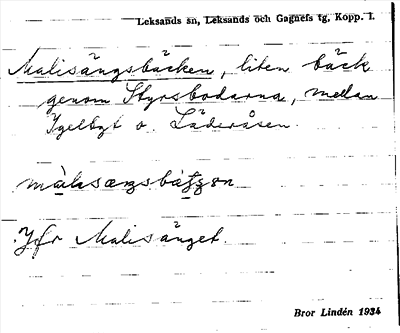 Leksands sn, Leksands och Gagnefs tg, Kopp. l.
Malisängsbäcken, liten bäck
genom Styrsbodarna, mellan
Ygelbyt o. Läderåsen.
Jfr Malisänget.
Bror Lindén 1934